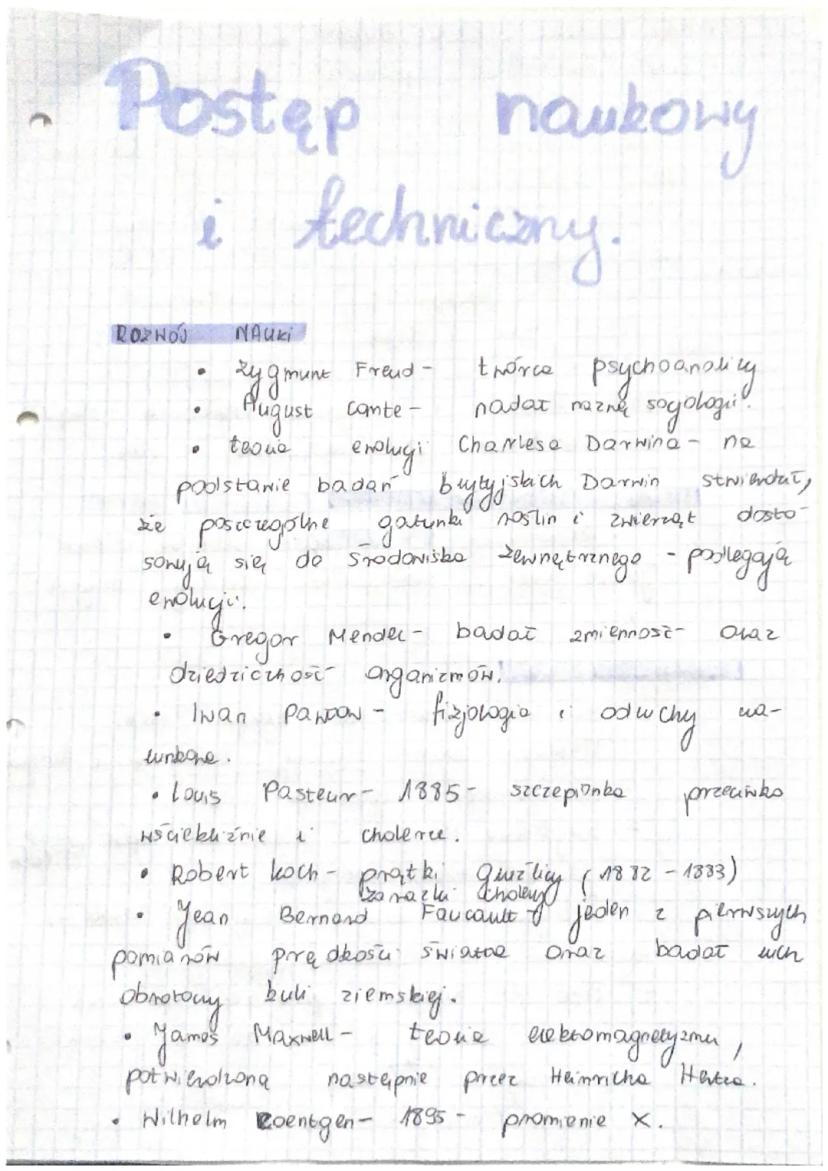 Postęp naukowy
i techniczny.
ROZWÓJ NAUKI
• Zygmunt Freud - twórca psychoanalizy
• August Comte - nadał nazwę socjologii.
• teoria ewolucji Charlesa Darwina - na
podstawie badań brytyjskich Darwin stwierdził,
że poszczególne gatunki roślin i zwierząt dosto-
sowują się do środowiska zewnętrznego - podlegają
ewolucji.
• Gregor Mendel - badał zmienność oraz
dziedziczność organizmów.
• Iwan Pawłow - fizjologia i odruchy wa-
runkowe.
• Louis Pasteur - 1885 - szczepionka przeciwko
wściekliźnie i cholerze.
• Robert Koch - prątki gruźlicy (1882 - 1883)
zarazki cholery
• Jean Bernard Faucault - jeden z pierwszych
pomiarów prędkości światła oraz badał ruch
obrotowy kuli ziemskiej.
• James Maxwell - teoria elektomagnetyzmu,
potwierdzona następnie przez Heinricha Hertza.
• Wilhelm Roentgen - 1895 - promienie X.